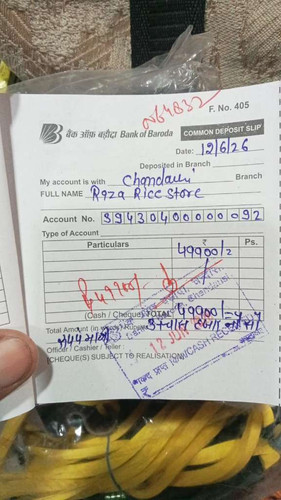 N64832
F. No. 405
बैंक ऑफ़ बड़ौदा Bank of Baroda
COMMON DEPOSIT SLIP
Date: 12/6/26
Deposited in Branch
My account is with Chandausi Branch
FULL NAME Raza Rice Store
Account No. 39430400000092
Type of Account
Particulars ₹ Ps.
49900/=
₹49900/-
(Cash / Cheque) TOTAL 49900/=
Total Amount (in words) Rupees
Officer / Cashier / Teller :
(CHEQUE(S) SUBJECT TO REALISATION)
12 JUN
नकद प्राप्त किया/CASH RECEIVED